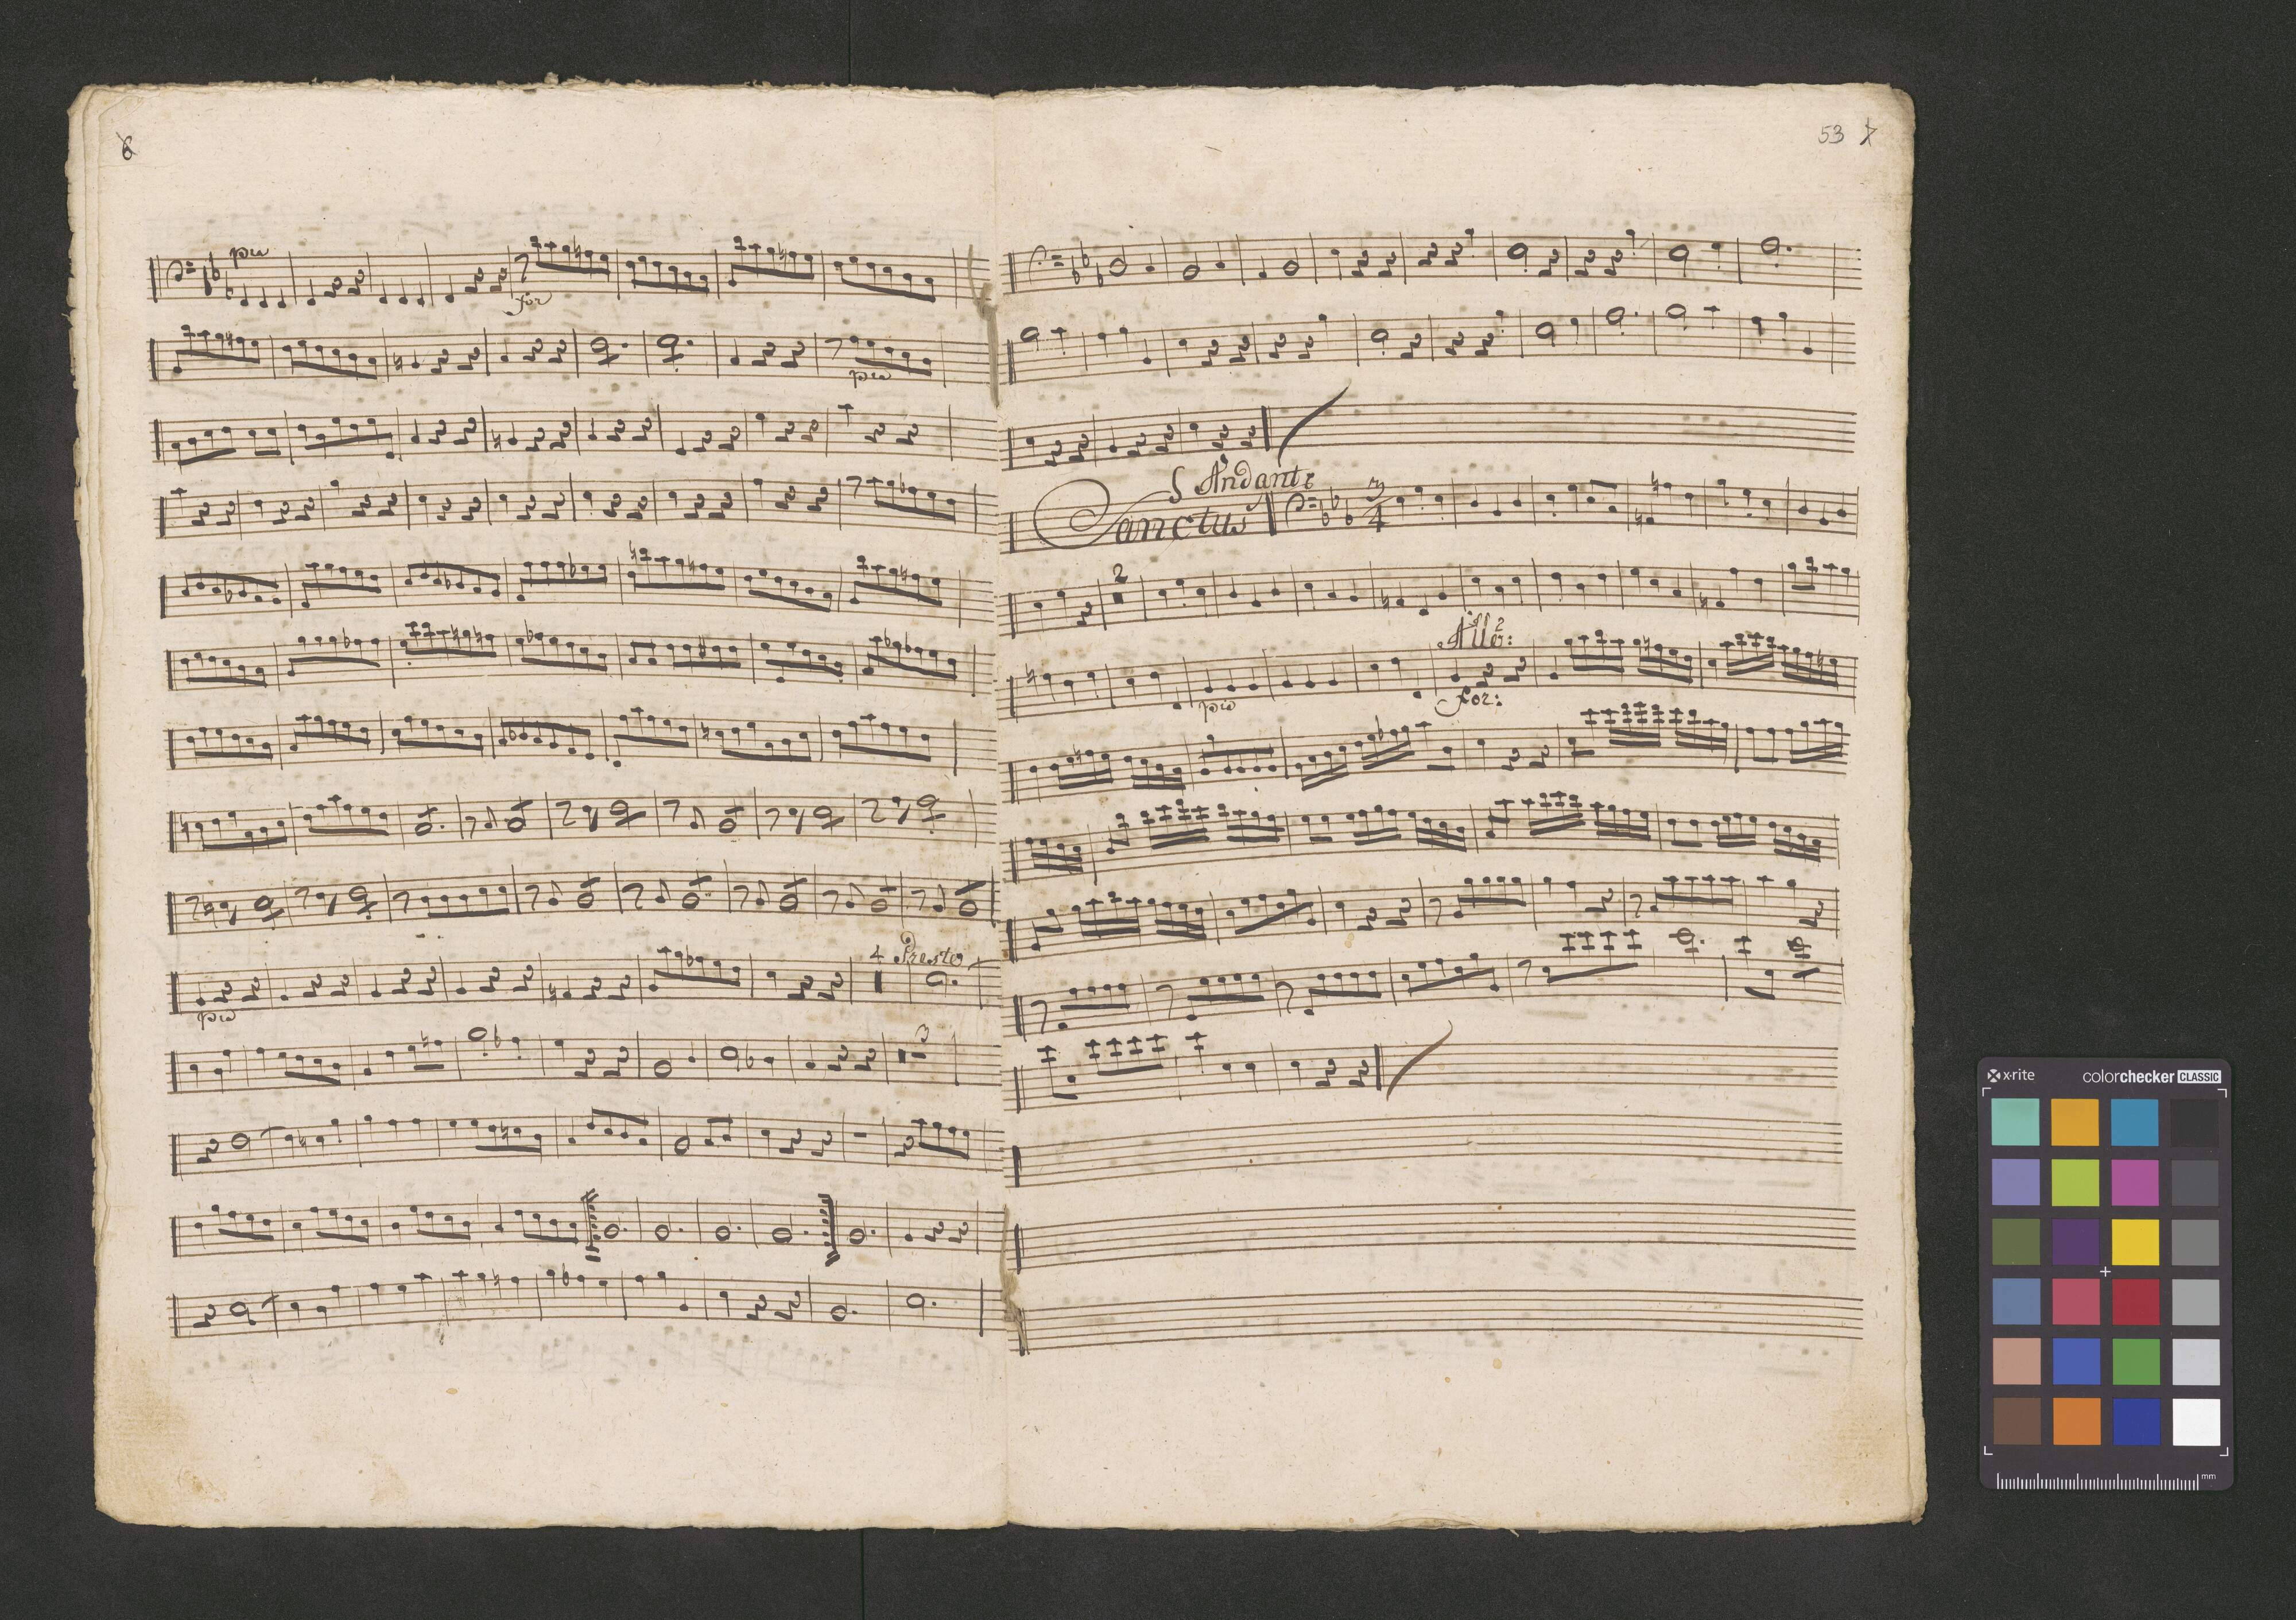 6
pia
for
pia
pia
4 Presto
3
53 7
Andante
Sanctus 3/4
2
Allo:
pia
for:
x-rite colorchecker CLASSIC
mm